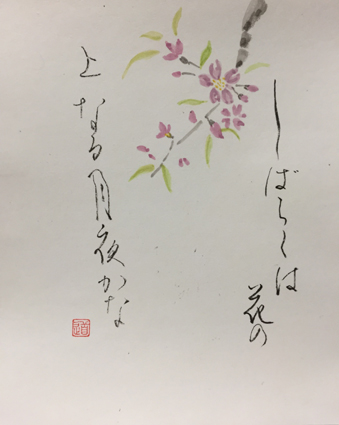 しばらくは
花の
上なる月夜かな